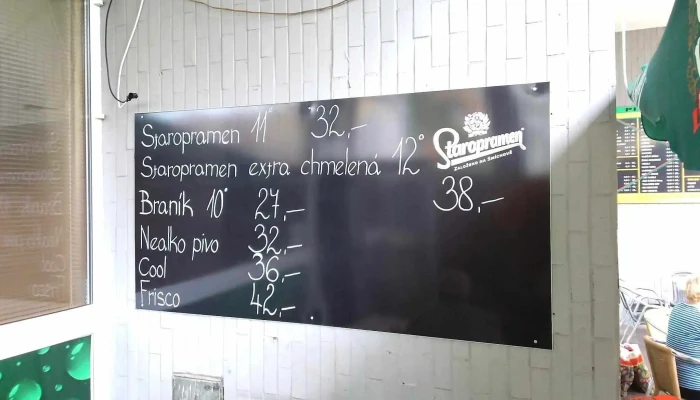 Staropramen 11° 32,-
Staropramen
ZALOŽENO NA SMÍCHOVĚ
Staropramen extra chmelená 12°
38,-
Braník 10° 27,-
Nealko pivo 32,-
Cool 36,-
Frisco 42,-